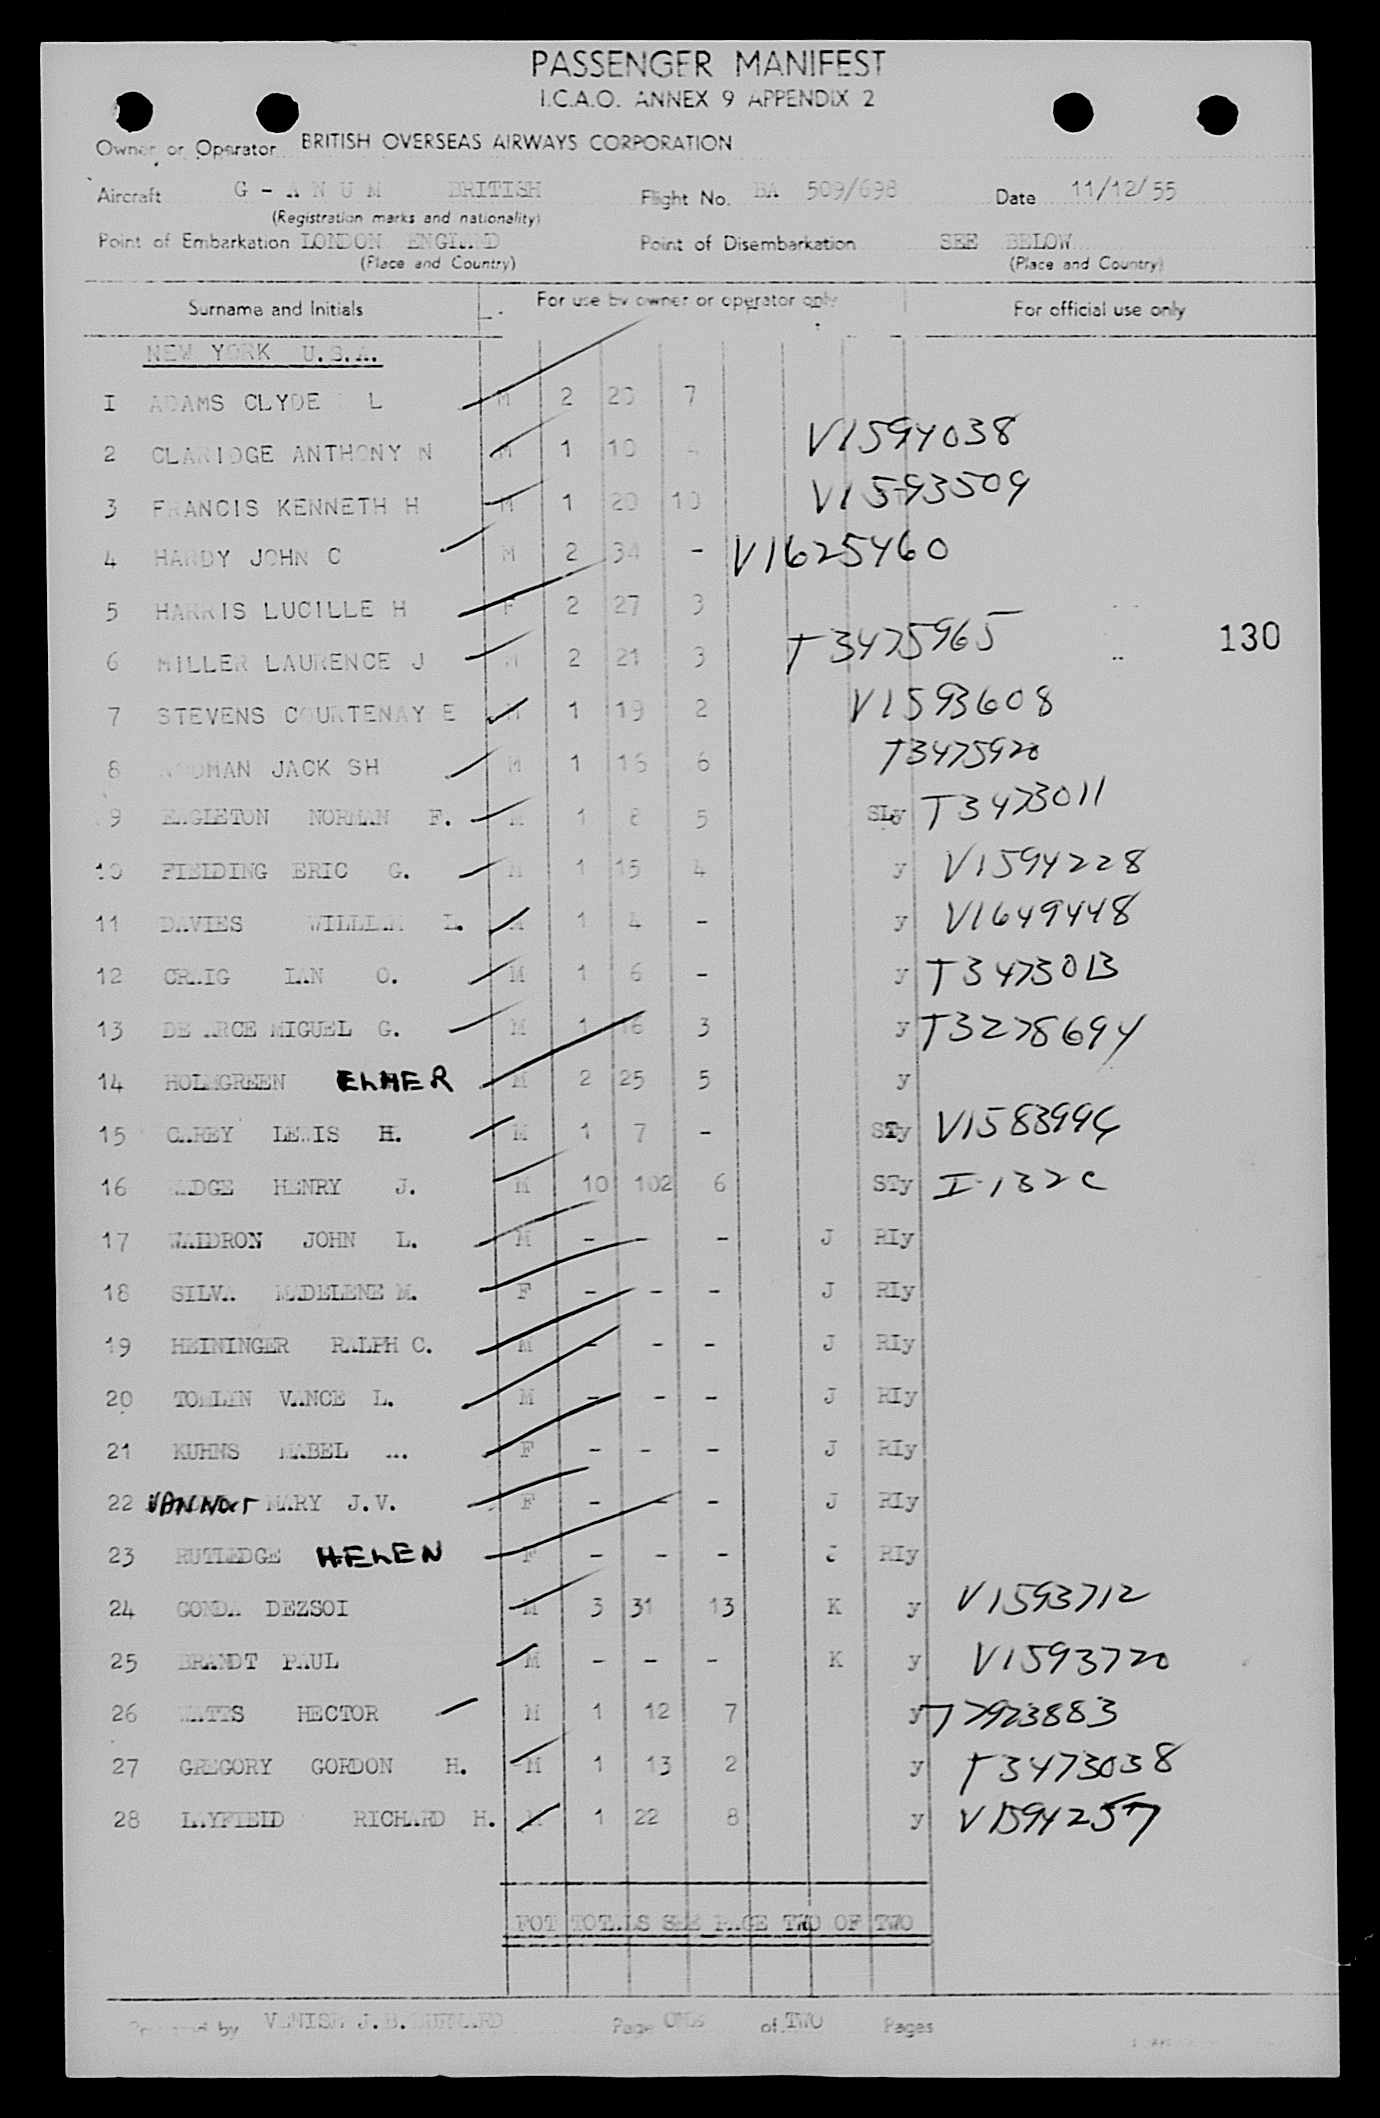 PASSENGER MANIFEST
I.C.A.O. ANNEX 9 APPENDIX 2
Owner or Operator BRITISH OVERSEAS AIRWAYS CORPORATION
Aircraft G - A N U M BRITISH Flight No. BA 509/698 Date 11/12/55
(Registration marks and nationality)
Point of Embarkation LONDON ENGLAND Point of Disembarkation SEE BELOW
(Place and Country) (Place and Country)
Surname and Initials For use by owner or operator only For official use only
NEW YORK U.S.A.
I ADAMS CLYDE L M 2 20 7
2 CLARIDGE ANTHONY N M 1 10 4 V1594038
3 FRANCIS KENNETH H M 1 20 10 V1593509
4 HARDY JOHN C M 2 34 - V1625460
5 HARRIS LUCILLE H F 2 27 3
6 MILLER LAURENCE J M 2 21 3 T3475965
130
7 STEVENS COURTENAY E M 1 19 2 V1593608
8 JACK SH M 1 16 6 T3475920
9 EAGLETON NORMAN F. M 1 8 5 SLy T3473011
10 FIELDING ERIC G. M 1 15 4 y V1594228
11 DAVIES WILLIAM L. M 1 4 - y V1649448
12 CRAIG IAN O. M 1 6 - y T3473013
13 DE ARCE MIGUEL G. M 1 16 3 y T3278694
14 HOLMGREEN ELMER M 2 25 5 y
15 CAREY LEWIS H. M 1 7 - STy
16 HENRY J. M 10 102 6 STy
17 WALDRON JOHN L. M - - - J RIy
18 SILVA MADELENE M. F - - - J RIy
19 HEININGER RALPH C. M - - - J RIy
20 TOMLIN VANCE L. M - - - J RIy
21 KUHNS MABEL F - - - J RIy
22 MARY J.V. F - - - J RIy
23 RUTLEDGE HELEN F - - - J RIy
24 GONDA DEZSOI M 3 31 13 K y V1593712
25 BRANDT PAUL M - - - K y V1593720
26 WATTS HECTOR M 1 12 7 y
27 GREGORY GORDON H. M 1 13 2 y T3473038
28 LAYFIELD RICHARD H. M 1 22 8 y V1594257
FOT TOTALS SEE PAGE TWO OF TWO
Prepared by Page ONE of TWO Pages